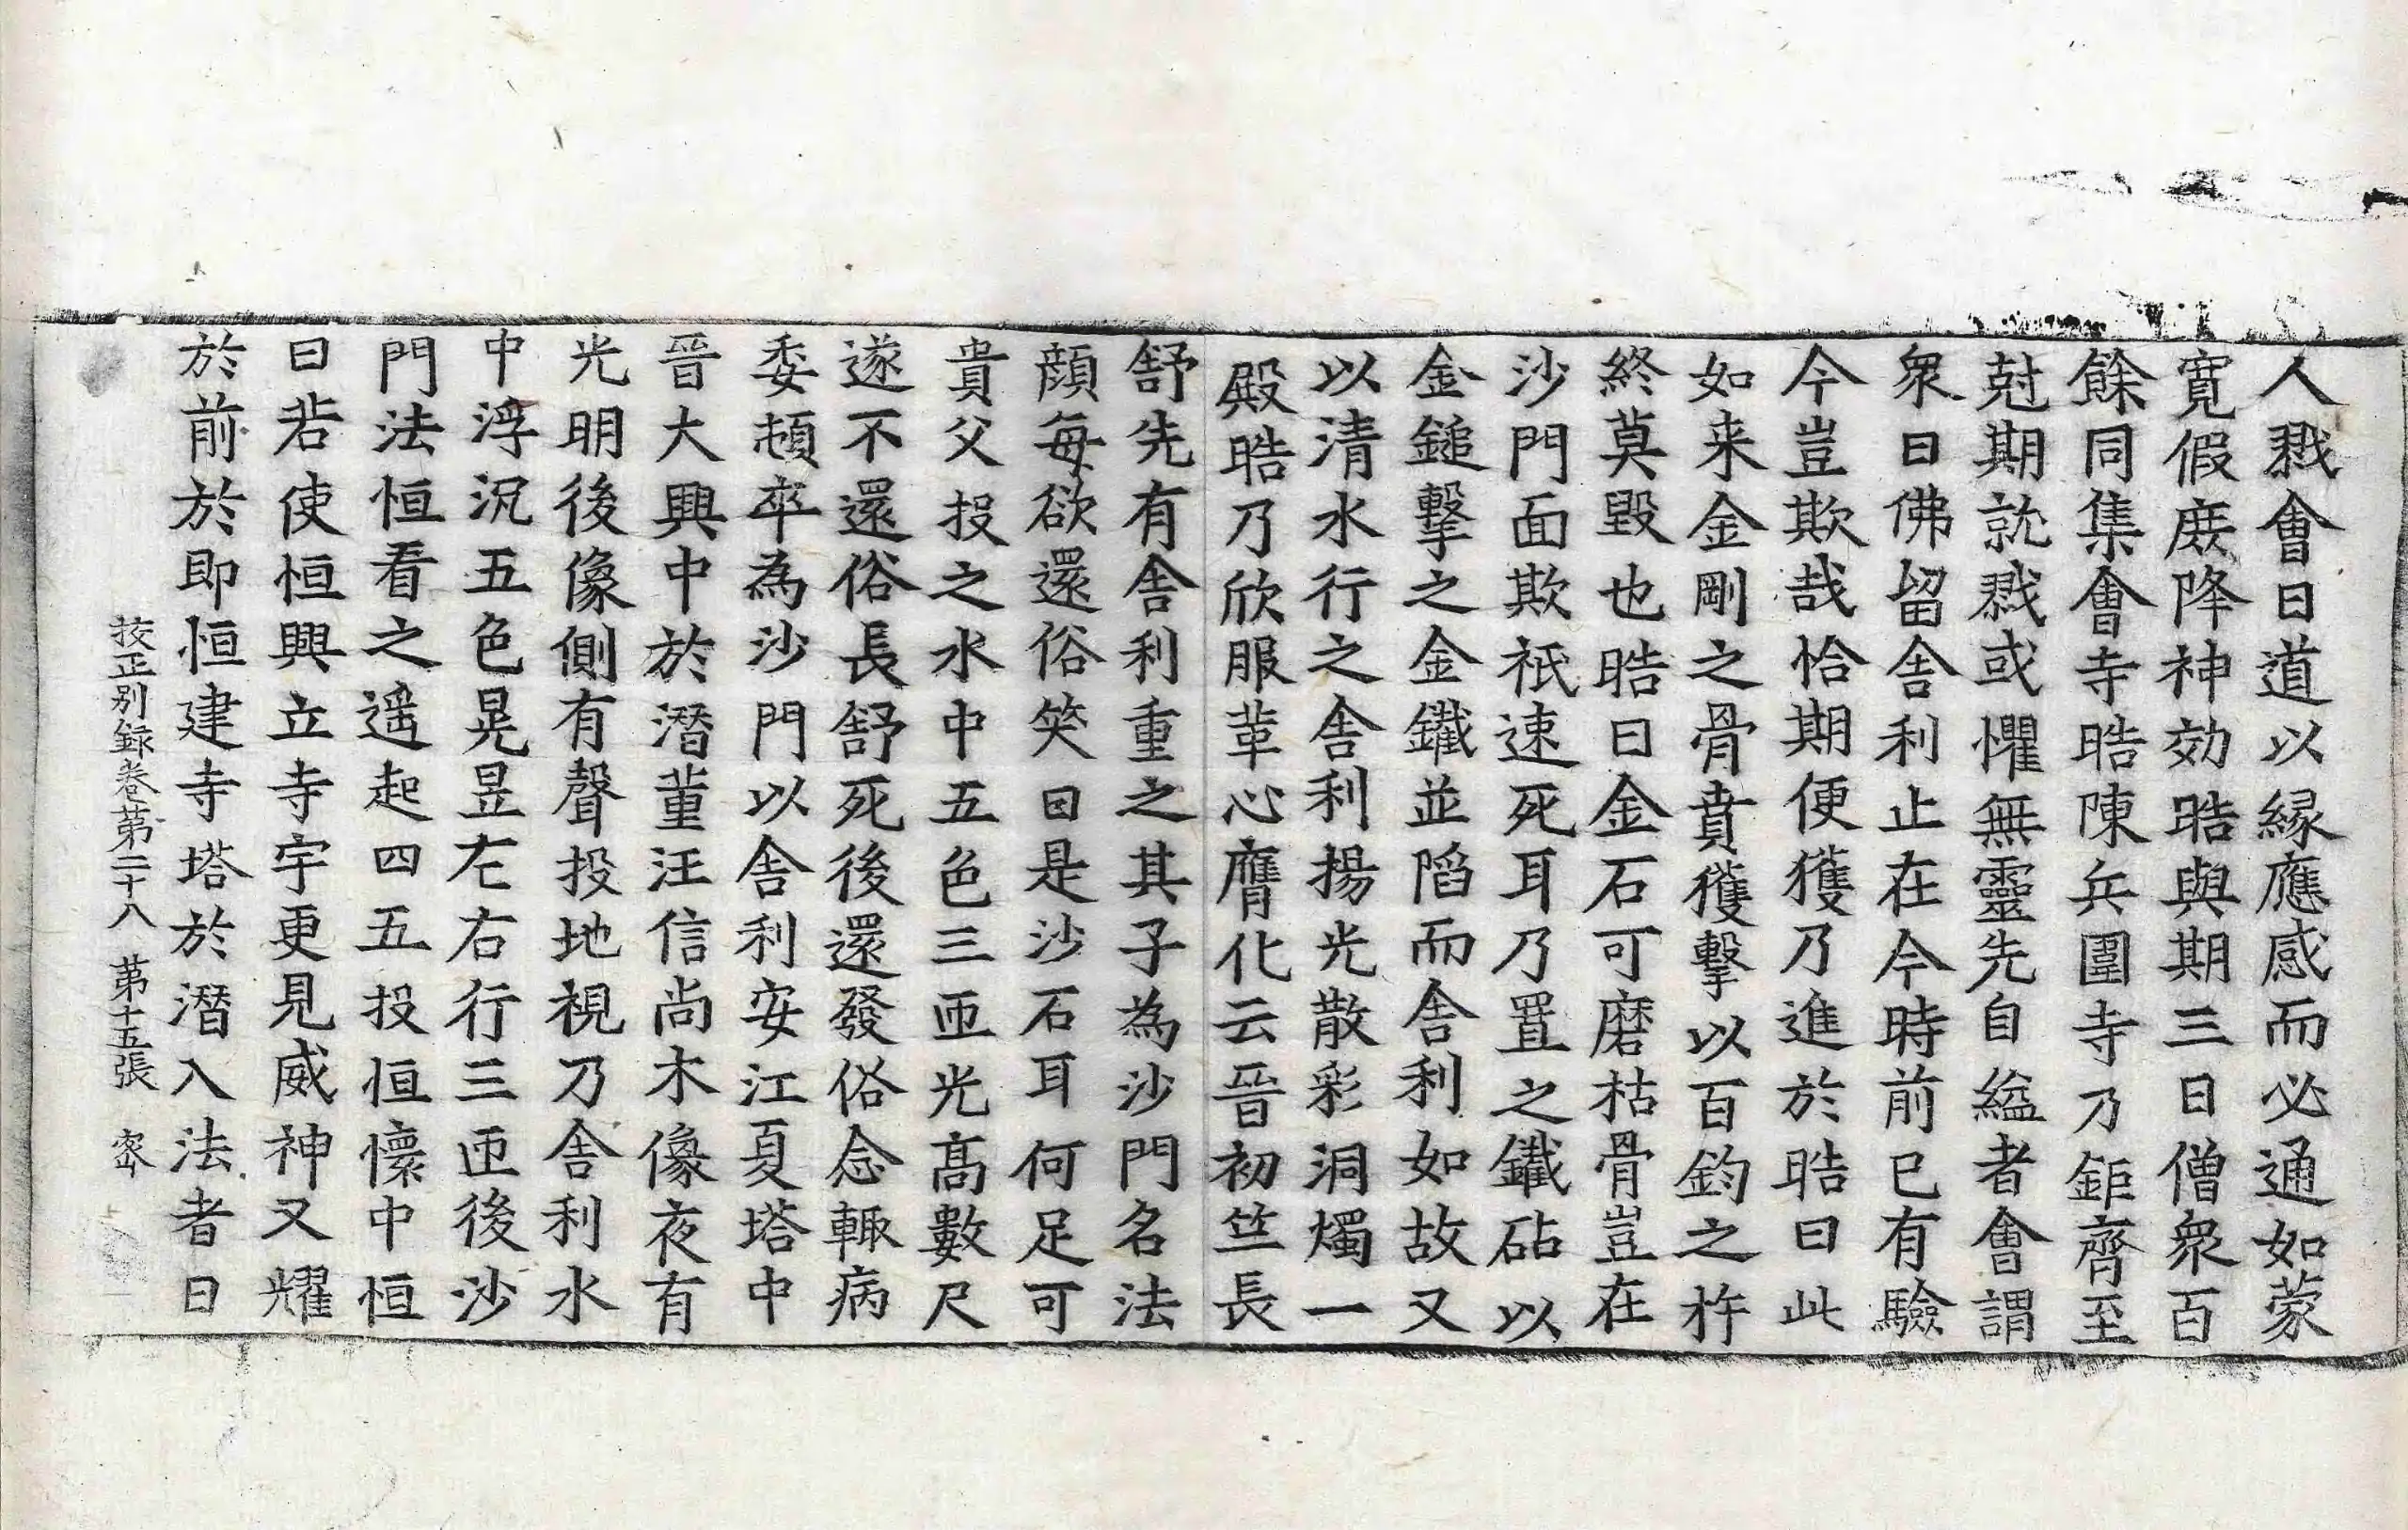 人戮會曰道以緣應感而必通如蒙
寬假庶降神効晧與期三日僧衆百
餘同集會寺晧陳兵圍寺乃鉅齊至
尅期就戮或懼無靈先自縊者會謂
衆曰佛留舍利止在今時前已有驗
今豈欺哉恰期便獲乃進於晧曰此
如来金剛之骨賁獲擊以百鈞之杵
終莫毀也晧曰金石可磨枯骨豈在
沙門面欺祇速死耳乃置之鐵砧以
金鎚擊之金鐵並䧟而舍利如故又
以清水行之舍利揚光散彩洞燭一
殿晧乃欣服革心膺化云晉初竺長
舒先有舍利重之其子為沙門名法
顔每欲還俗笑曰是沙石耳何足可
貴父投之水中五色三匝光高數尺
遂不還俗長舒死後還發俗念輙病
委頓卒為沙門以舍利安江夏塔中
晉大興中於潛董汪信尚木像夜有
光明後像側有聲投地視乃舍利水
中浮沉五色晃昱左右行三匝後沙
門法恒看之遥起四五投恒懷中恒
曰若使恒興立寺宇更見威神又耀
於前於即恒建寺塔於潛入法者日
挍正别録卷苐二十八 苐十五張 宻